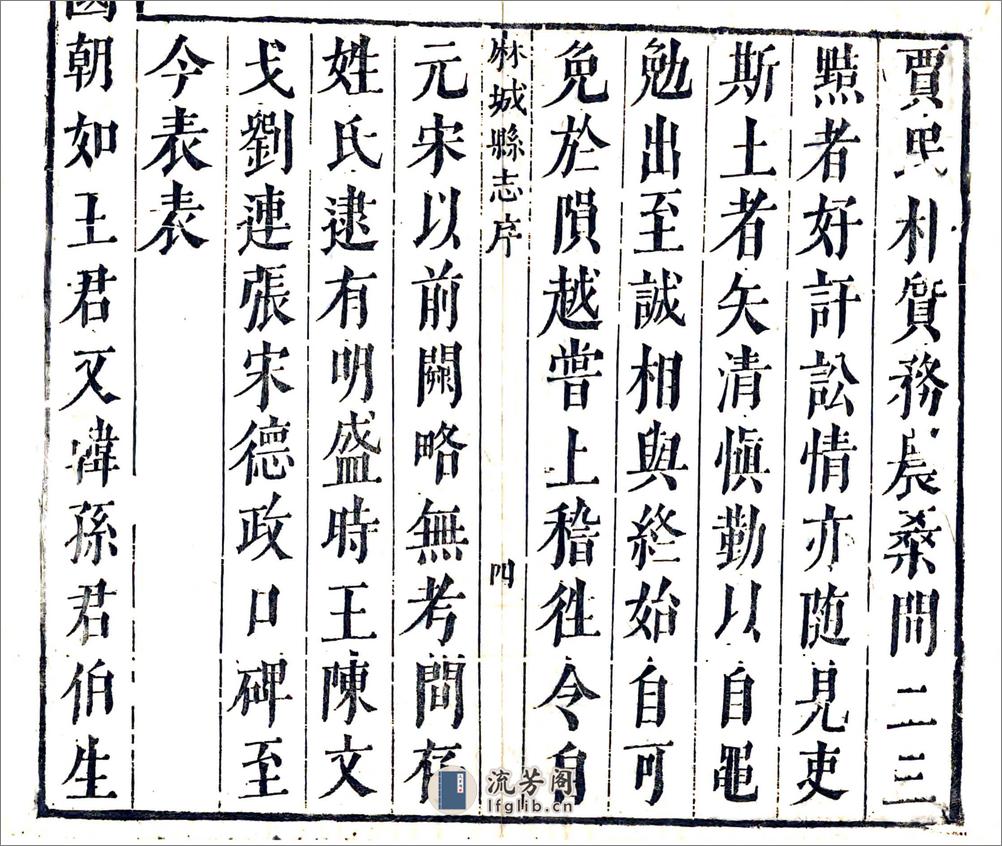 賈民朴質務農桑間二三
黠者好訐訟情亦随見吏
斯土者矢清愼勤以自黽
勉出至誠相與終始自可
免於隕越嘗上稽徃令自
麻城縣志序
四
元宋以前闕略無考間存
姓氏逮有明盛時王陳文
戈劉連張宋德政口碑至
今表表
國朝如王君又
孫君伯生
流芳阁
lfglib.cn